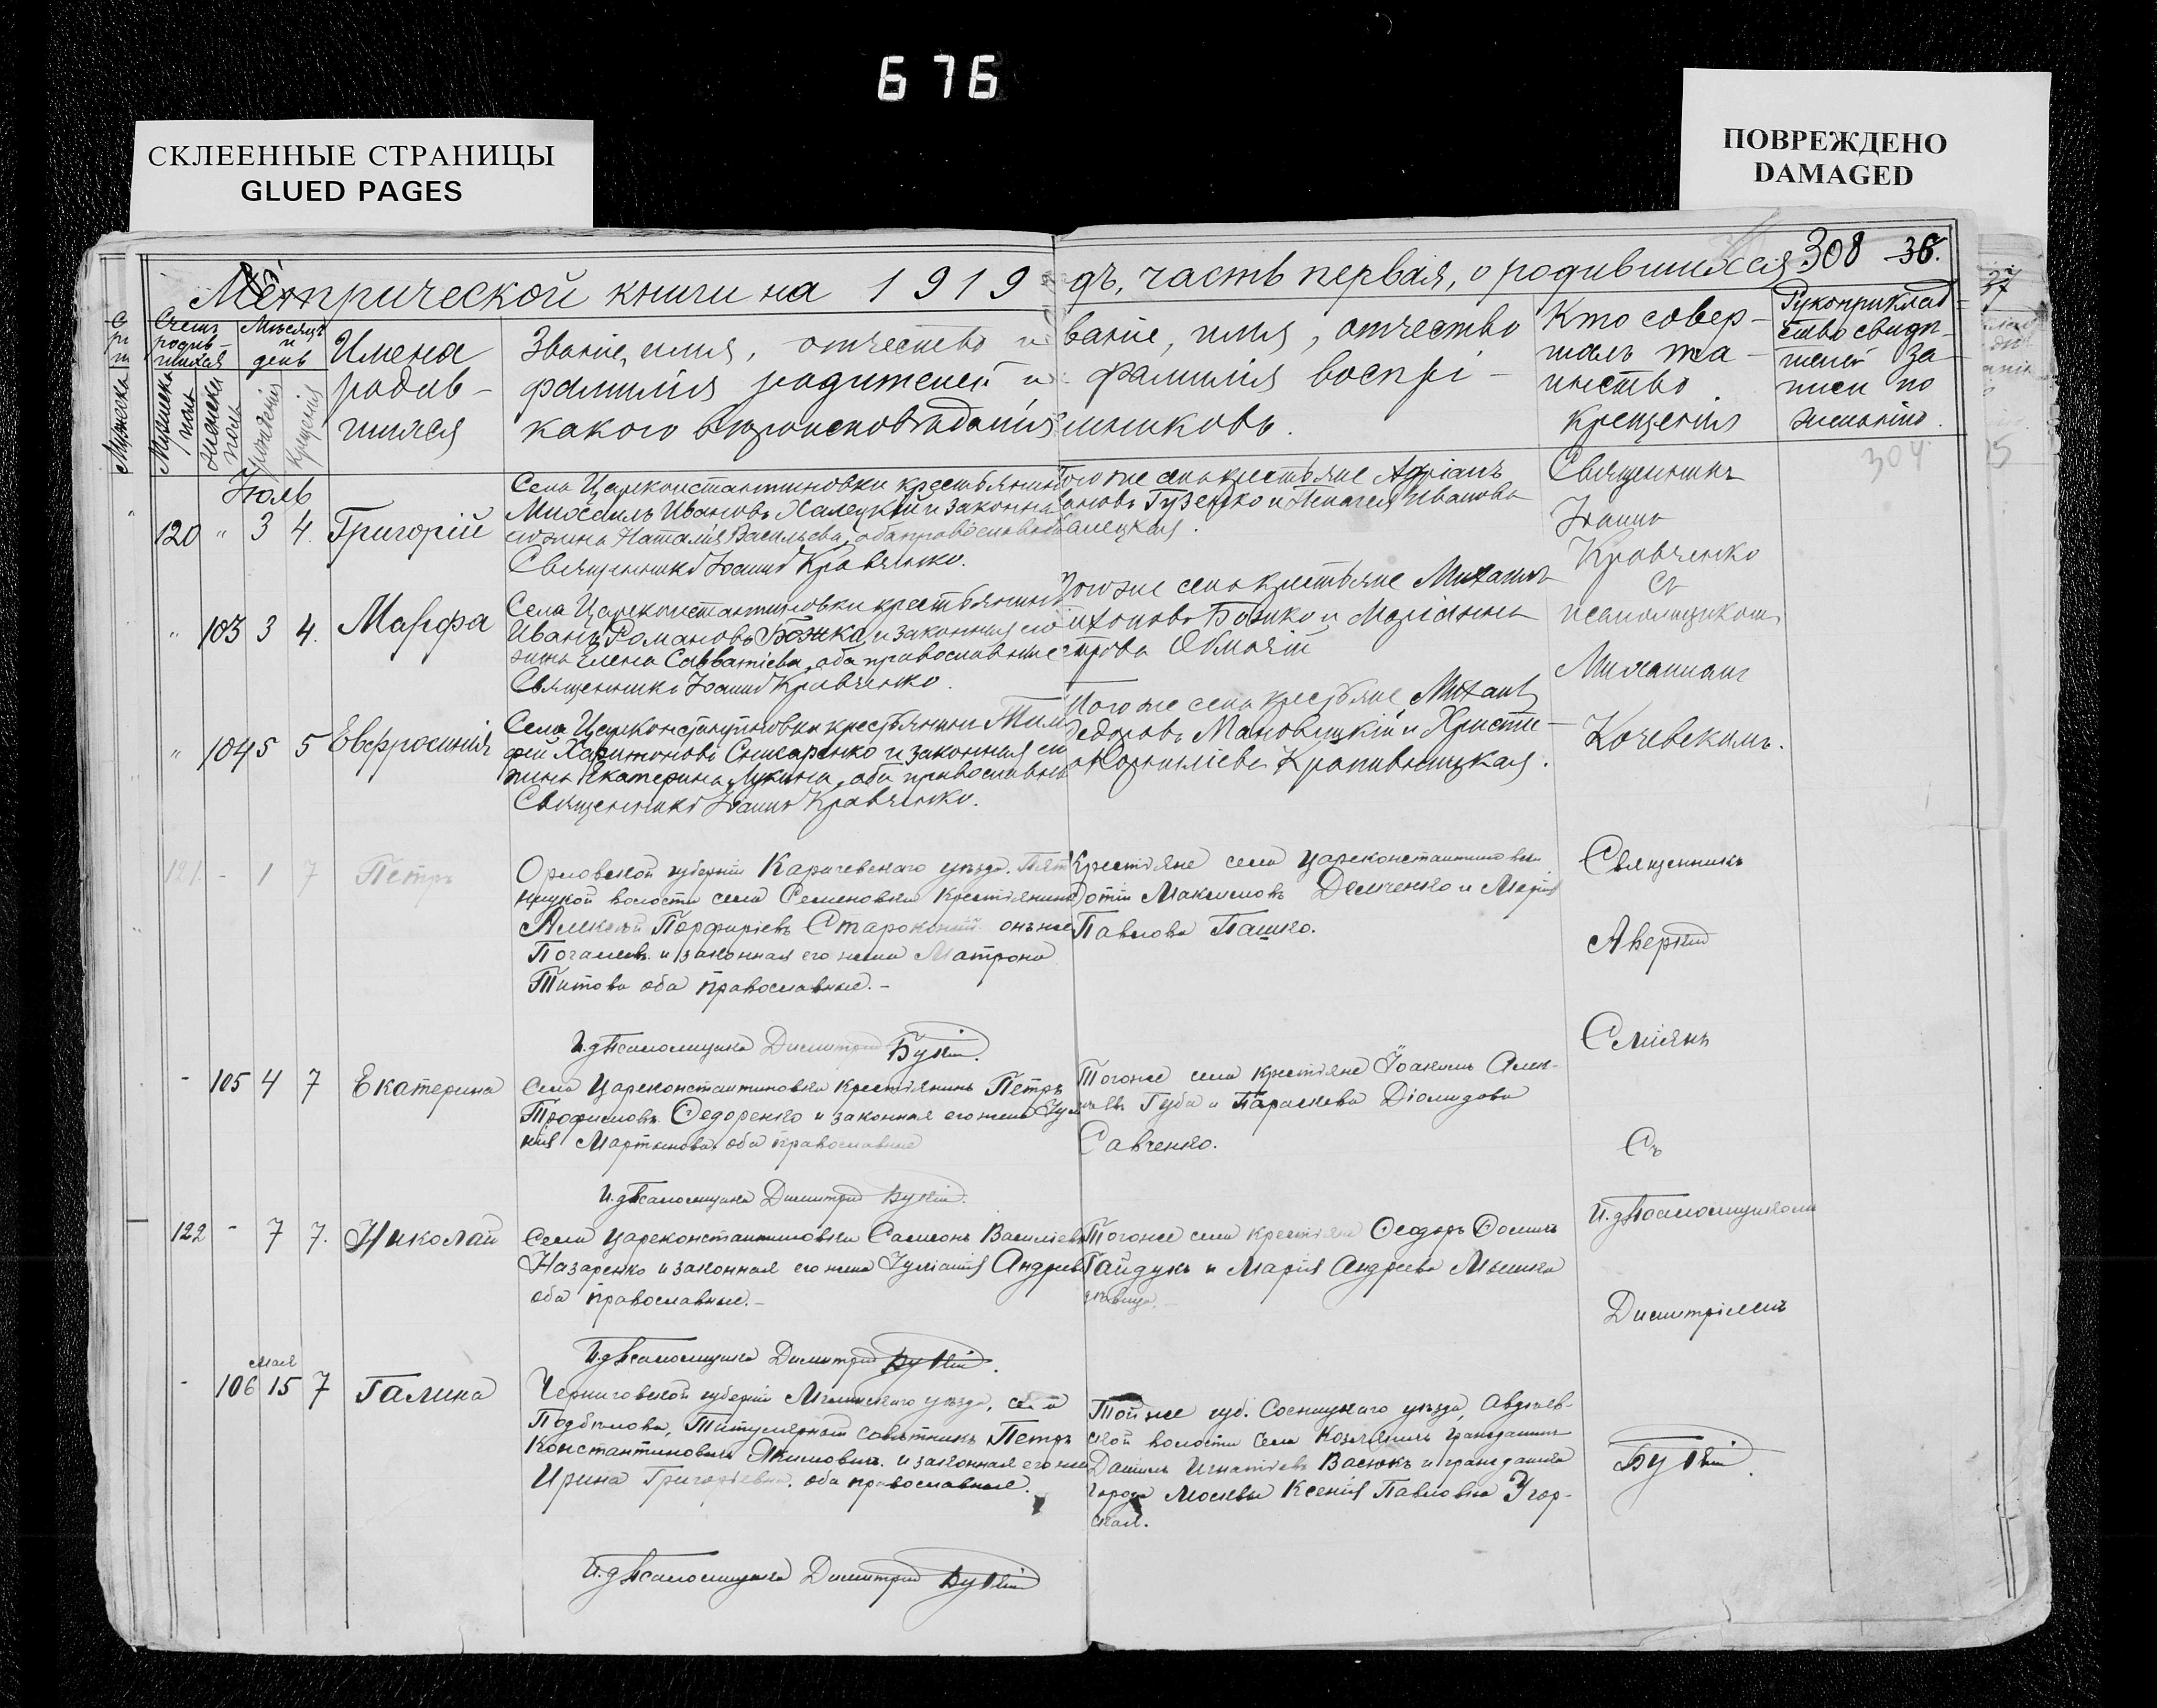 676
СКЛЕЕННЫЕ СТРАНИЦЫ
GLUED PAGES
ПОВРЕЖДЕНО
DAMAGED
308 36.
Метрической книги на 1919
дъ, часть первая, о родившихся
Счетъ родив-шихся
Мѣсяцъ и день
Имена родив-шихся
Званіе, имя, отчество и
фамилія родителей и
какого вѣроисповѣданія
ваніе, имя, отчество
фамилія воспрі-
емниковъ.
Кто совер-
шалъ та-
инство
крещенія
Рукоприклад-
ство свидѣ-
телей за-
писи по
желанію.
304
Мужеска пола
женска пола
рожденія
крещенія
Іюль
120 " 3 4. Григорій
Села Цареконстантиновки крестьянинъ
Михаилъ Ивановъ Халецкій и законна
его жена Наталія Васильева, оба православ
Священникъ Іоаннъ Кравченко.
того же села крестьяне Адріанъ
ановъ Гузенко и Пелагея Иванова
алецкая.
Священникъ
Іоаннъ
Кравченко
съ
псаломщикомъ
Михаиломъ
Кочевскимъ.
" 103 3 4. Марфа
Села Цареконстантиновки крестьянинъ
Иванъ Романовъ Божко, и законная его
жена Елена Савватіева, оба православные
Священникъ Іоаннъ Кравченко.
того же села крестьяне Михаилъ
Божко и Маріанна
" 104 5 5 Евфросинія
Села Цареконстантиновки крестьянинъ Тимо
фей Харитоновъ Снисаренко и законная его
жена Екатерина Лукина, оба православн
Священникъ Іоаннъ Кравченко.
Того же села крестьяне, Михаилъ
Федоровъ Мановицкій и Христи-
Корниліева Крапивницкая.
121. - 1 7 Петръ
Орловской губерніи Карачевскаго уѣзда. Пят
ницкой волости села Семеновки крестьянинъ
Алексѣй Порфиріевъ онъ же
и законная его жена Матрона
Титова оба православные.-
И.д. Псаломщика Димитрій
Крестьяне села Цареконстантиновки
Максимовъ Демченко и Марія
Павлова Пашко.
Священникъ
Аверкій
Съ
И.д. Псаломщикомъ
Димитріемъ
- 105 4 7 Екатерина
Села Цареконстантиновки крестьянинъ Петръ
Трофимовъ Ѳедоренко и законная его жена Іул
нія Мартынова оба православные
И.д. Псаломщика Димитрій
Тогоже села крестьяне Іоакимъ Алек-
Губа и Параскева Діомидова
Савченко.
122 - 7 7. Николай
Села Цареконстантиновки Самсонъ Васильевъ
Назаренко и законная его жена Іуліанія Андреев
оба православные.-
И.д. Псаломщика Димитрій
Тогоже села крестьяне Ѳеодоръ Ѳоминъ
Гайдукъ и Марія Андреева Мышка
дѣвица.-
Мая
- 106 15 7 Галина
Черниговской губерніи Мглинскаго уѣзда, села
Титулярный совѣтникъ Петръ
Константиновичъ Якимовичъ. и законная его жена
Ирина Григорьевна. оба православные.
И.д. Псаломщика Димитрій
Той же губ. Сосницкаго уѣзда, Авдѣев-
ской волости села гражданинъ
Даніилъ Игнатіевъ Васюкъ и гражданка
города Москвы Ксенія Павловна Угор-
ская.